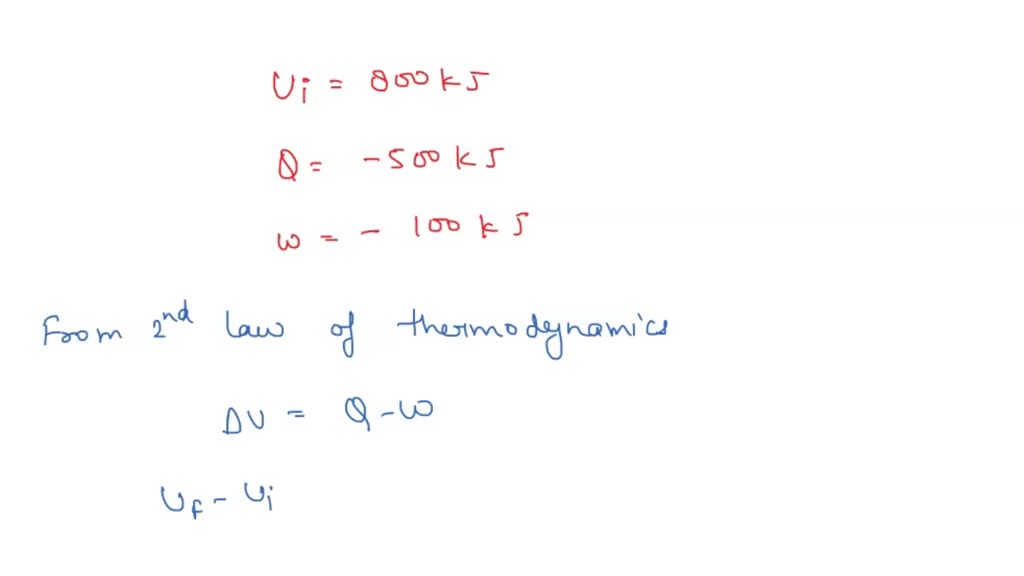 Ui = 800 kJ
Q = -500 kJ
w = - 100 kJ
From 2nd law of thermodynamics
ΔU = Q - w
Uf - Ui